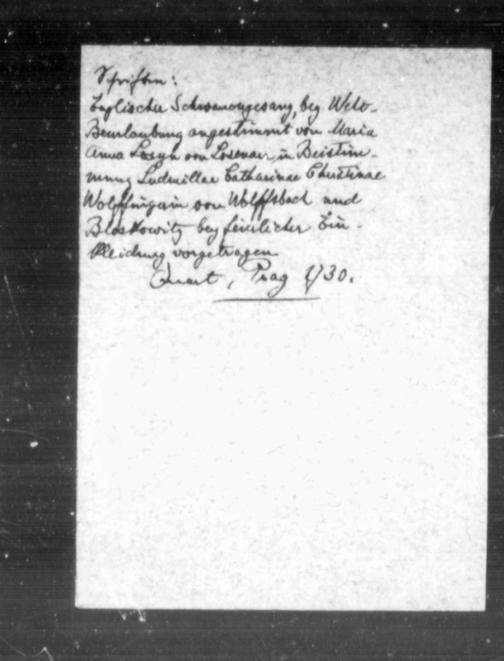 Schriften:
Englischer Schwanengesang, bey Welt-
Beurlaubung angestimmt von Maria
Anna Losyn von Losenau in Beistim-
mung Ludmillae Catharinae Christinae
Wolffingerin von Wolffsbach und
Bloskowitz bey feierlicher Ein-
kleidung vorgetragen.
Quart, Prag 1730.